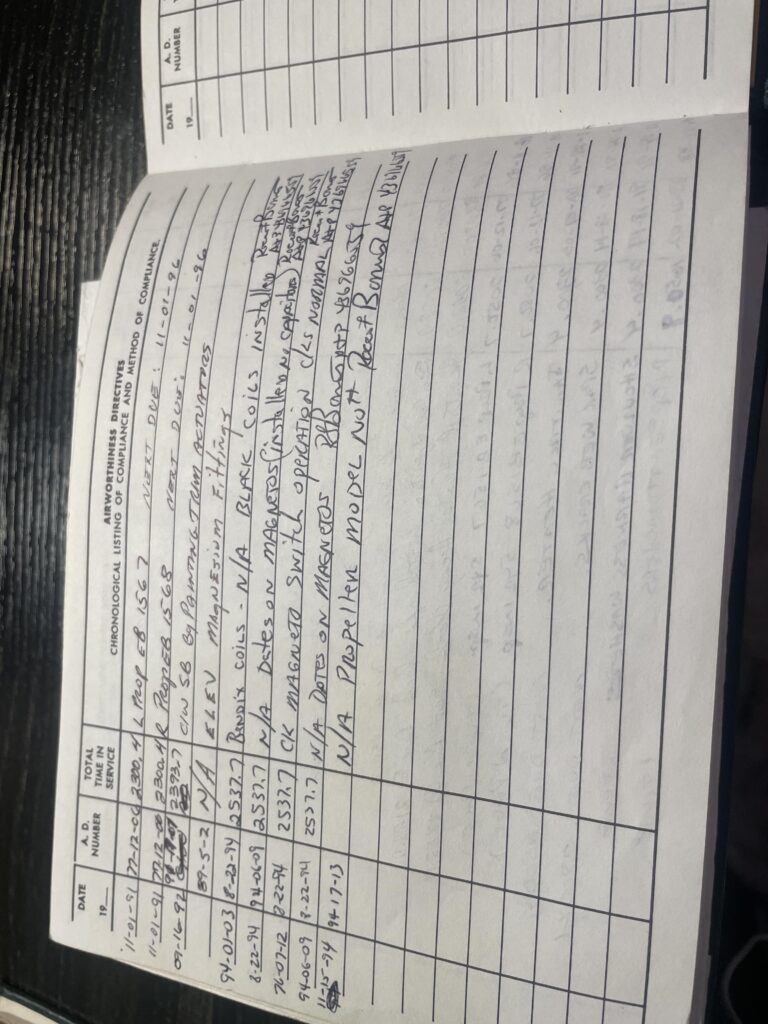 AIRWORTHINESS DIRECTIVES
CHRONOLOGICAL LISTING OF COMPLIANCE AND METHOD OF COMPLIANCE
DATE
19
A. D.
NUMBER
TOTAL
TIME IN
SERVICE
11-01-91 77-12-06 2300.4 L PROP EB 1567 NEXT DUE: 11-01-96
11-01-91 77-12-06 2300.4 R PROP EB 1568 NEXT DUE: 11-01-96
09-16-92 2393.7 C/W SB BY PAINTING TRIM ACTUATORS
89-5-2 N/A ELEV MAGNESIUM Fittings
94-01-03 8-22-94 2537.7 Bendix COILS - N/A BLACK COILS INSTALLED
8-22-94 94-06-09 2537.7 N/A Dates on MAGNETOS (installed no capacitors)
76-07-12 8-22-94 2537.7 CK MAGNETO SWITCH OPERATION CKS NORMAL
94-06-09 8-22-94 2537.7 N/A DATES ON MAGNETOS
11-15-94 94-17-13 N/A Propeller MODEL NOtt
DATE
19
A. D.
NUMBER